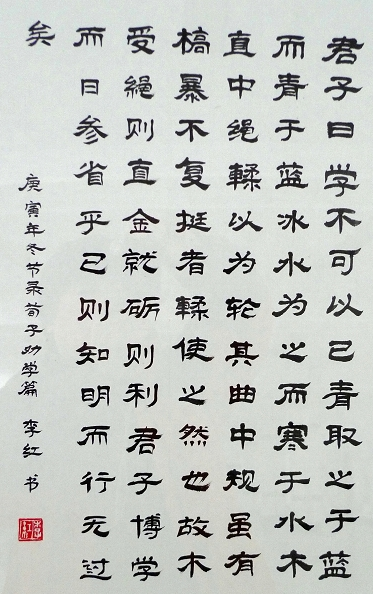 君子曰学不可以已青取之于蓝
而青于蓝冰水为之而寒于水木
直中绳輮以为轮其曲中规虽有
槁暴不复挺者輮使之然也故木
受绳则直金就砺则利君子博学
而日参省乎己则知明而行无过
矣
庚寅年冬节录荀子劝学篇 李红 书
李红